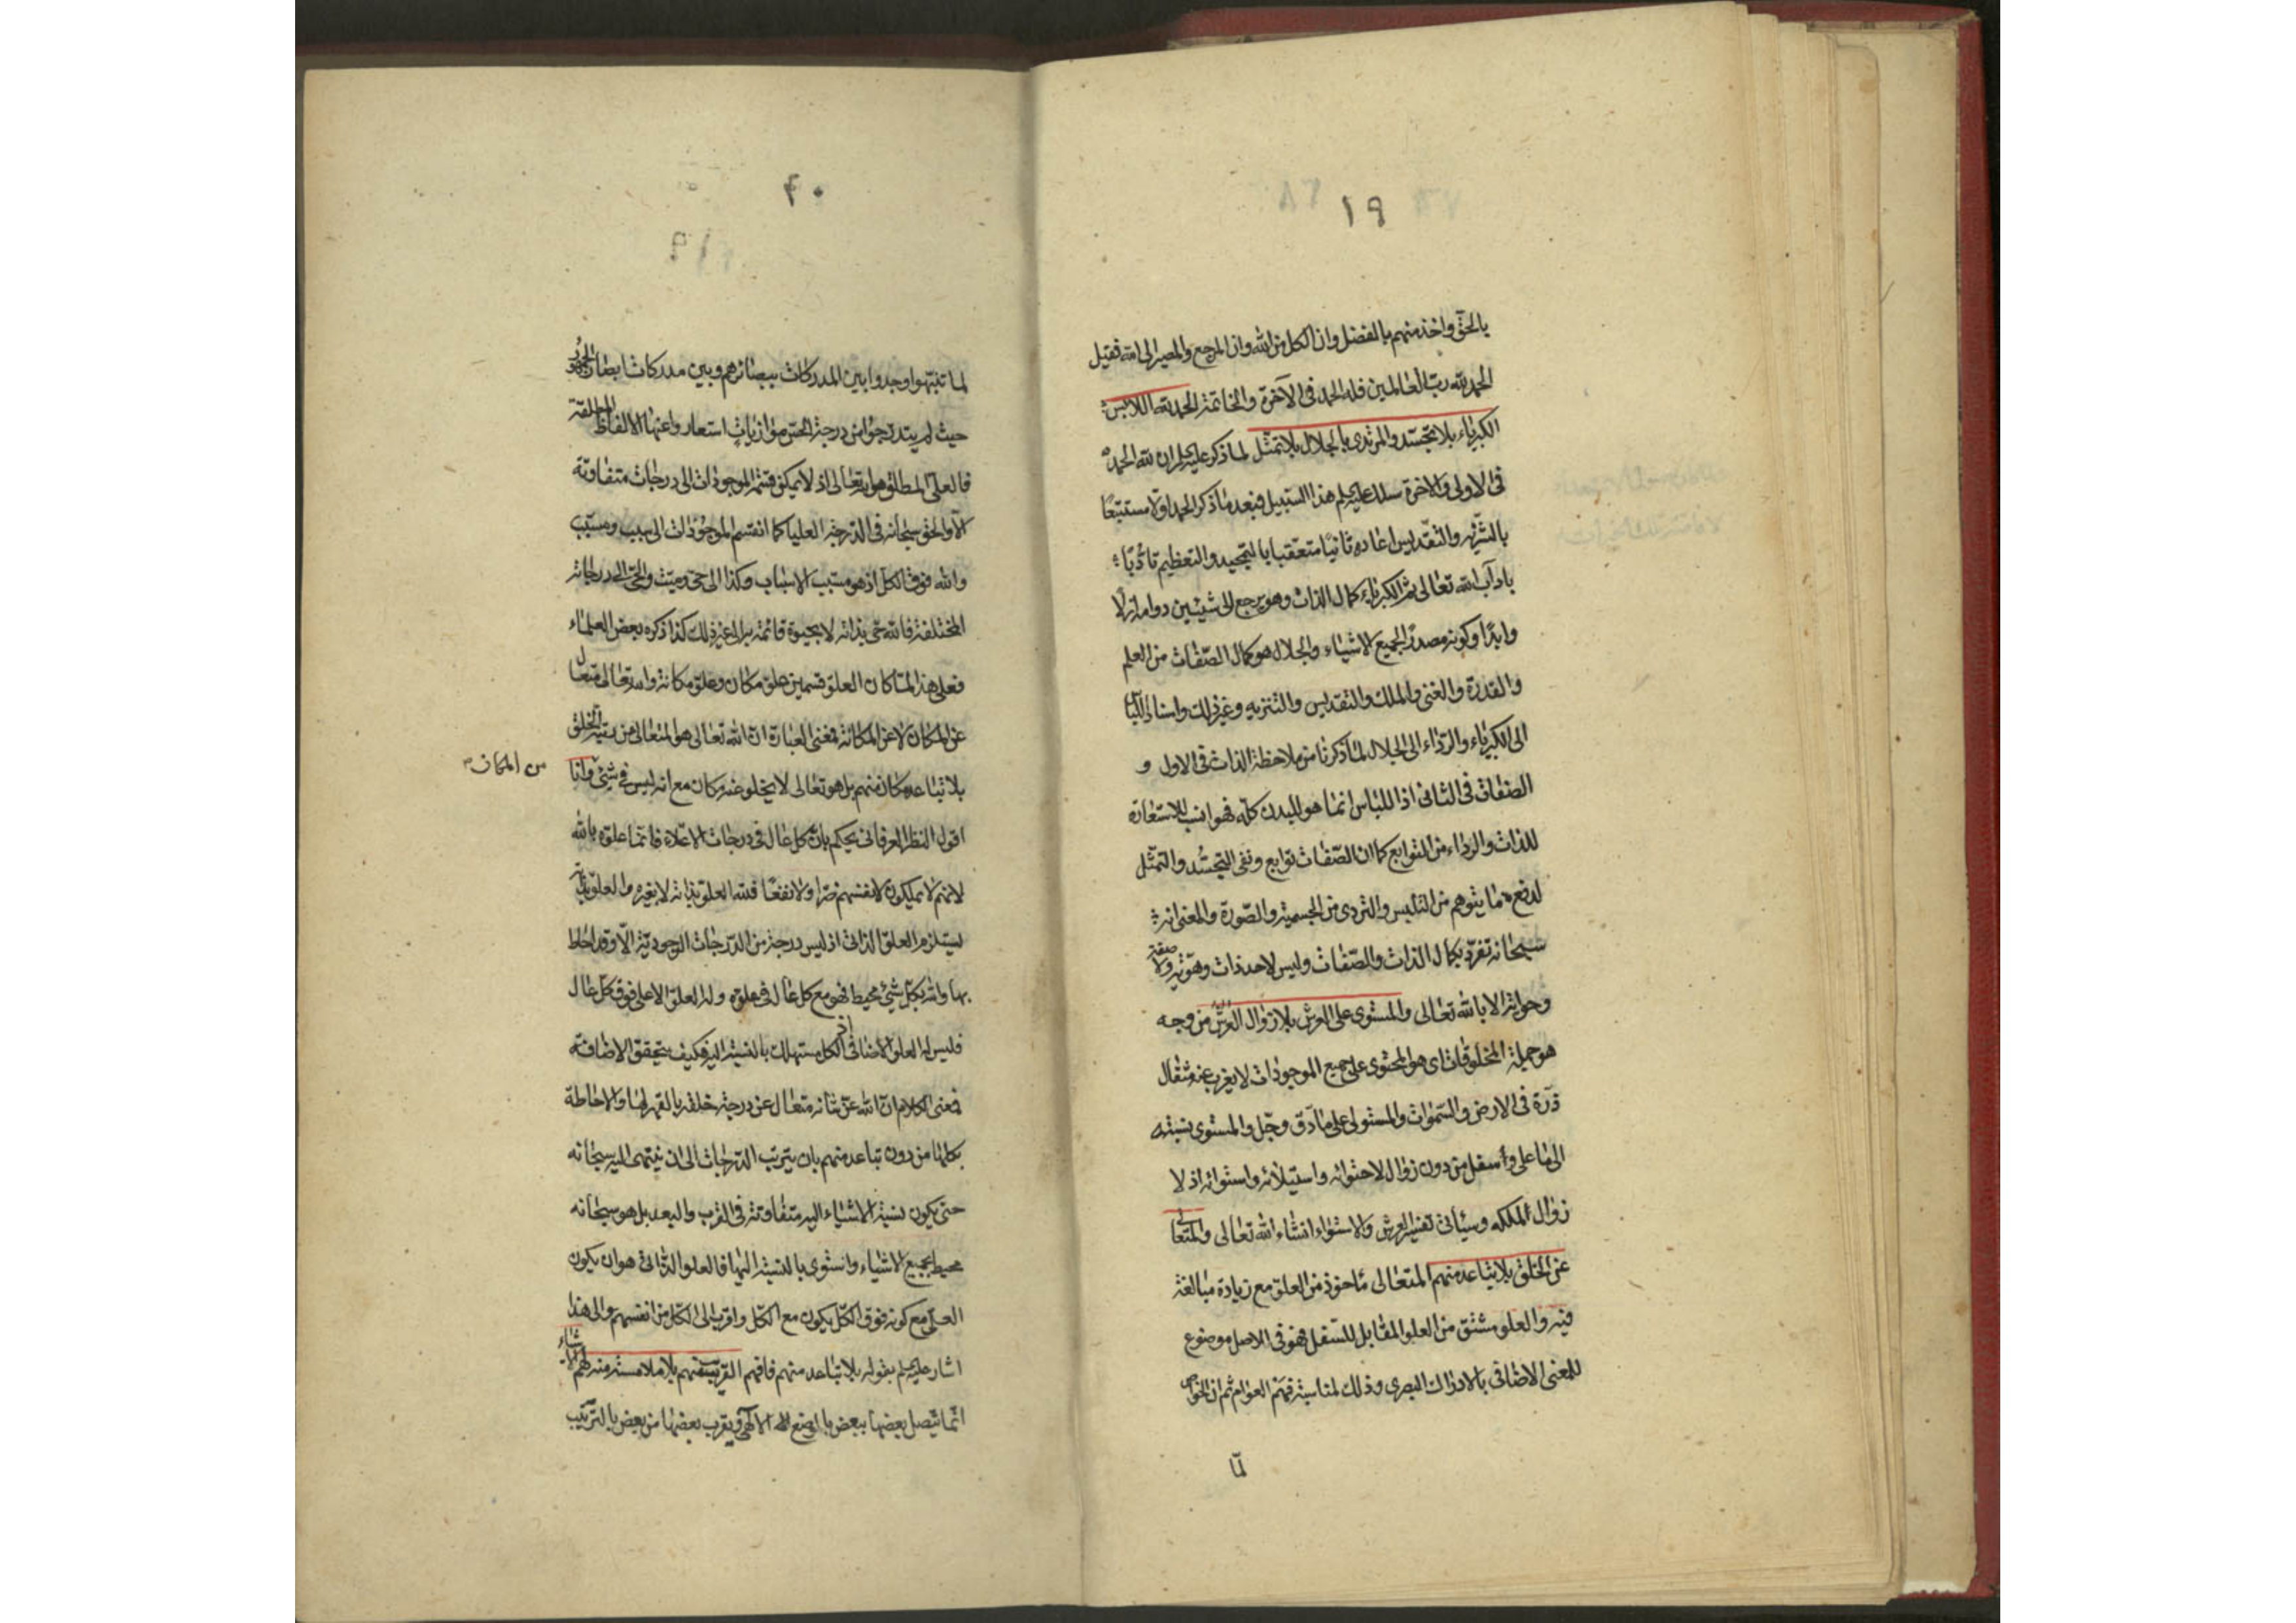 ١٩
بالحق واخذ منهم بالفضل وان الكل من الله وان المرجع والمصير الى الله فقيل
الحمد لله رب العالمين فله الحمد فى الآخرة والخاتمة الحمد لله اللابس
الكبرياء بلا تجسّد والمرتدى بالجلال بلا تمثّل لما ذكر عليه لم ان لله الحمد
فى الاولى والاخرة سلك عليه لم هذا السبيل فبعد ما ذكر الحمد اولا مستتبعًا
بالتنزيه والتقديس اعاده ثانيًا متعقبا بالتمجيد والتعظيم تأدّبًا
بآداب الله تعالى ثم الكبرياء كمال الذات وهو يرجع الى شيئين دوامه ازلًا
وابدًا وكونه مصدر الجميع الاشياء والجلال هو كمال الصّفات من العلم
والقدرة والغنى والملك والتقديس والتنزيه وغير ذلك واسناد اللباس
الى الكبرياء والرداء الى الجلال لما ذكرنا من ملاحظة الذات فى الاول و
الصفات فى الثانى اذ اللباس انما هو للبدن كلّه فهو انسب للاستعارة
للذات والرداء من التوابع كما ان الصّفات توابع ونفى التجسّد والتمثّل
لدفع ما يتوهم من التلبس والتردى من الجسمية والصّورة والمعنى انه
سبحانه تفرّد بكمال الذات والصّفات وليس لاحد ذات وهويّة ولا صفة
وحواية الا بالله تعالى والمستوى على العرش بلا زوال العرش من وجه
هو جملة المخلوقات اى هو المحتوى على جميع الموجودات لا يعزب عنه مثقال
ذرّة فى الارض والسّموات والمستولى على ما دّق وجّل والمستوى نسبته
الى ما على وأسفل من دون زوال لاحتوائه واستيلائه واستوائه اذ لا
زوال لملكه وسيأتى تفسير العرش والاستواء انشاء الله تعالى والمتعالى
عن الخلق بلا تباعد منهم المتعالى مأخوذ من العلوّ مع زيادة مبالغة
فيه والعلو مشتق من العلو المقابل للسّفل فهو فى الاصل موضوع
للمعنى الاضافى بالادراك البصرى وذلك لمناسبة فهم العوام ثم ان الخواص
لمّا
٢٠
لما تنبّهوا وجدوا بين المدركات ببصائرهم وبين مدركات ابصار الجمهور
حيث لم يتدرّجوا من درجة الحسّ موازيات استعاروا عنها الالفاظ المطلقة
فالعلىّ المطلق هو الله تعالى اذ لا يمكن قسمة الموجودات الى درجات متفاوتة
الّا والحق سبحانه فى الدّرجة العليا كما انقسم الموجودات الى سبب ومسبّب
والله فوق الكل اذ هو مسبّب الاسباب وكذا الى حىّ وميّت والحىّ الى درجاته
المختلفة فالله حى بذاته لا بحيوة قائمة به الى غير ذلك كذا ذكره بعض العلماء
فعلى هذا لمّا كان العلوّ قسمين علوّ مكان وعلوّ مكانة والله تعالى متعال
عن المكان لا عن المكانة فمعنى العبارة ان الله تعالى هو المتعالى من بقية الخلق
من المكان
بلا تباعد مكان منهم بل هو تعالى لا يخلو عنه مكان مع انه ليس فى شىء وانا
اقول النظر العرفانى يحكم بان كل عال فى درجات الاعلاء فانما علوّه بالله
لانهم لا يملكون لانفسهم ضرًا ولا نفعًا فلله العلوّ بذاته لا بغيره والعلوّ بذاته
يستلزم العلوّ الذاتى اذ ليس درجة من الدّرجات الوجوديّة الّا وقد احاط
بها والله بكل شىء محيط فهو مع كل عال فى علوّه وله العلوّ الاعلى فوق كل عال
فليس له العلوّ الاضافى اذ الكل مستهلك بالنسبة اليه فكيف يتحقق الاضافة
فمعنى الكلام انّ الله عزّ شأنه متعال عن درجة خلقه بالقهر لها والاحاطة
بكلّها من دون تباعد منهم بان يترتب الدّرجات الى ان ينتهى اليه سبحانه
حتى يكون نسبة الاشياء اليه متفاوتة فى القرب والبعد بل هو سبحانه
محيط بجميع الاشياء واستوى بالنسبة اليها فالعلو الذّاتى هو ان يكون
العلىّ مع كونه فوق الكلّ يكون مع الكلّ واقرب الى الكلّ من انفسهم والى هذا
اشار عليه لم بقوله بلا تباعد منهم فافهم القريب منهم بلا ملامسة منه لهم الاشياء
انّما يتّصل بعضها ببعض بالوضع الالهى ويقرب بعضها من بعض بالترتيب